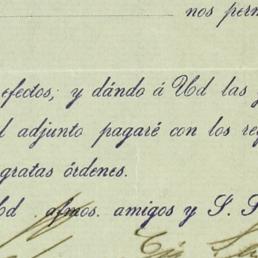 nos perm
efectos; y dándo á Ud las
l adjunto pagaré con los re
gratas órdenes.
Ud. afmos. amigos y S. S